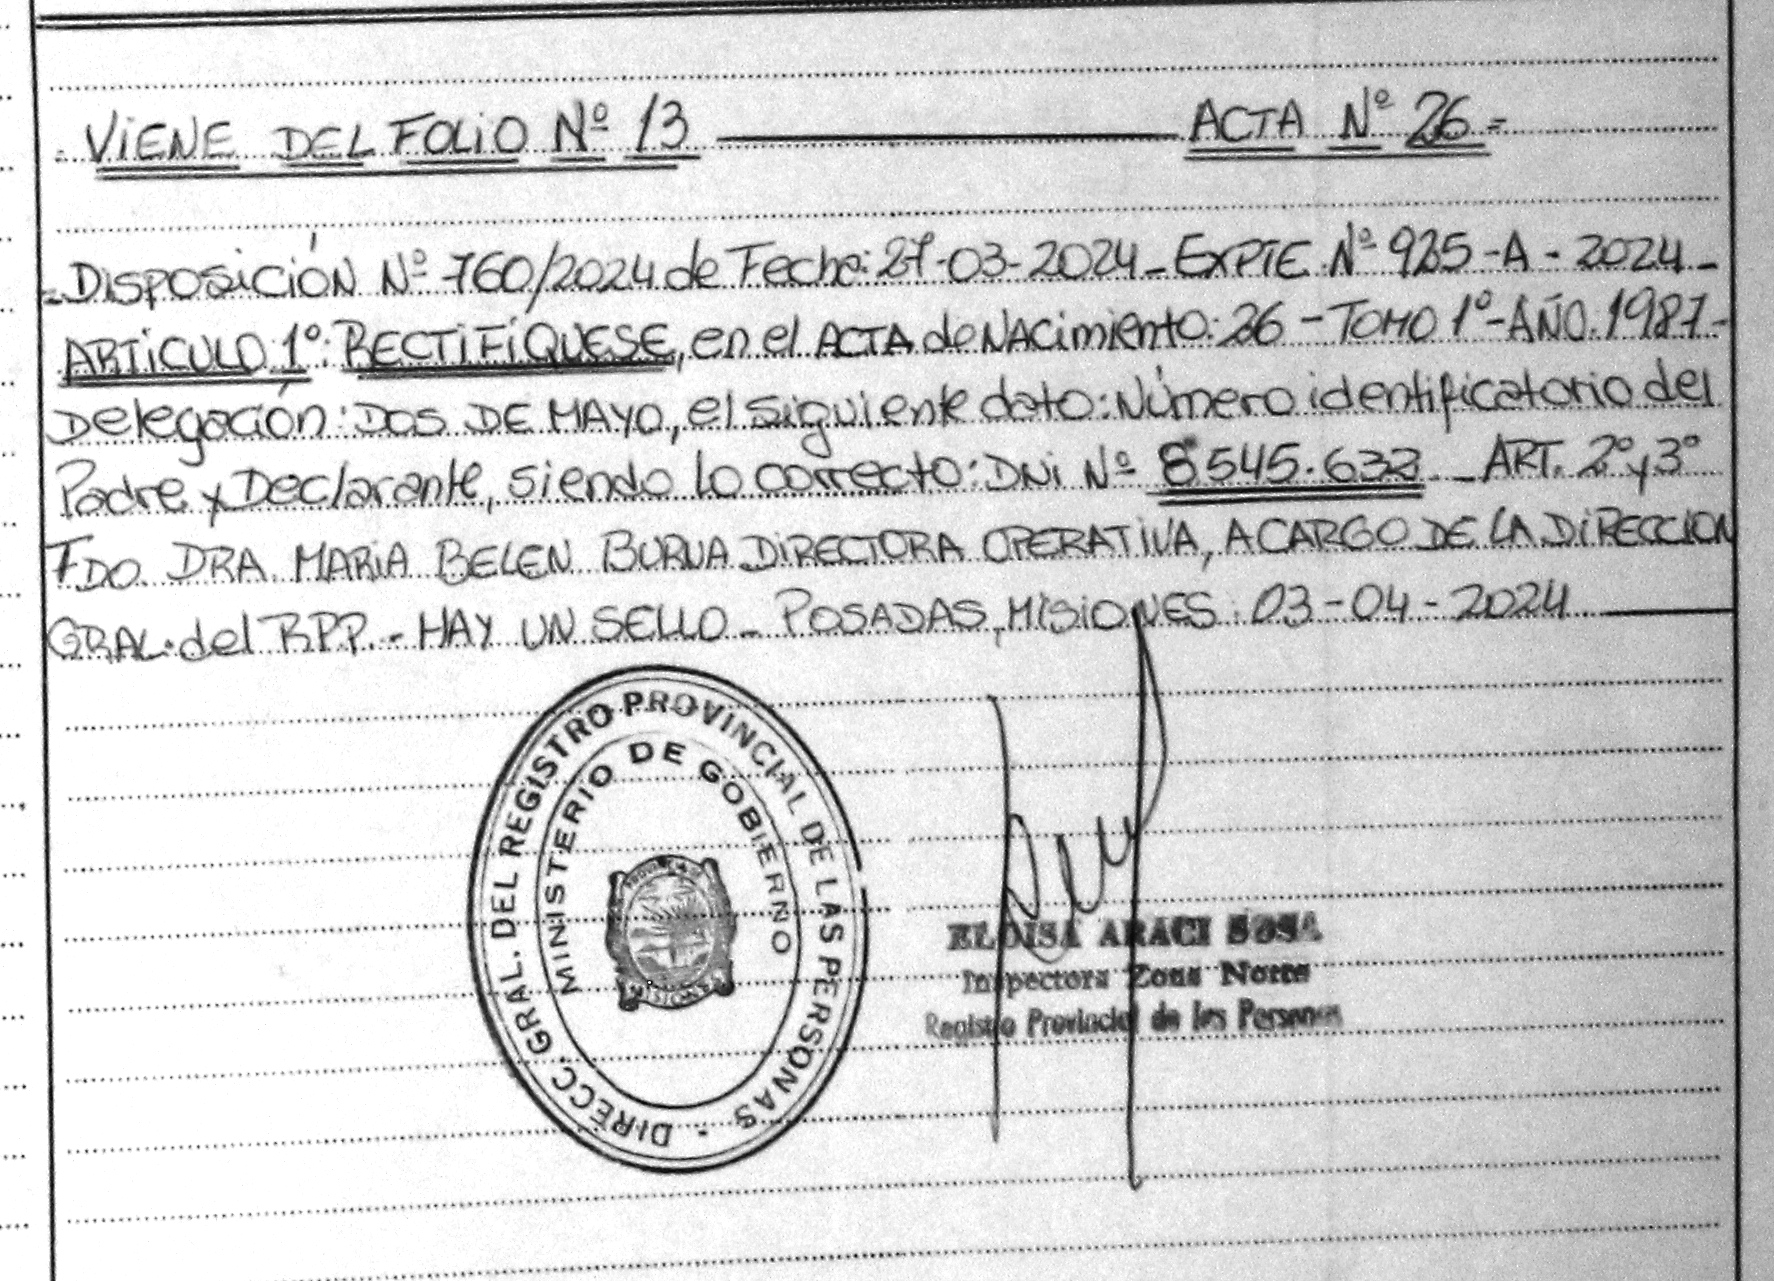 = VIENE DEL FOLIO Nº 13 ——— ACTA Nº 26 =
= DISPOSICIÓN Nº 760/2024 de Fecha: 27-03-2024 - EXPTE Nº 925-A-2024 -
ARTICULO 1º: RECTIFÍQUESE, en el ACTA de NACimiento: 26 - TOMO 1º - AÑO 1987 -
Delegación: DOS DE MAYO, el siguiente dato: Número identificatorio del
Padre y Declarante, siendo lo correcto: DNi Nº 8.545.632 - ART. 2º y 3º
FDO. DRA. MARIA BELEN DIRECTORA OPERATIVA, A CARGO DE LA DIRECCION
GRAL. del RPP. - HAY UN SELLO - POSADAS, MISIONES: 03-04-2024 ———
DIRECC. GRAL. DEL REGISTRO PROVINCIAL DE LAS PERSONAS -
MINISTERIO DE GOBIERNO
MISIONES
ELOISA ARACI SOSA
Inspectora Zona Norte
Registro Provincial de las Personas